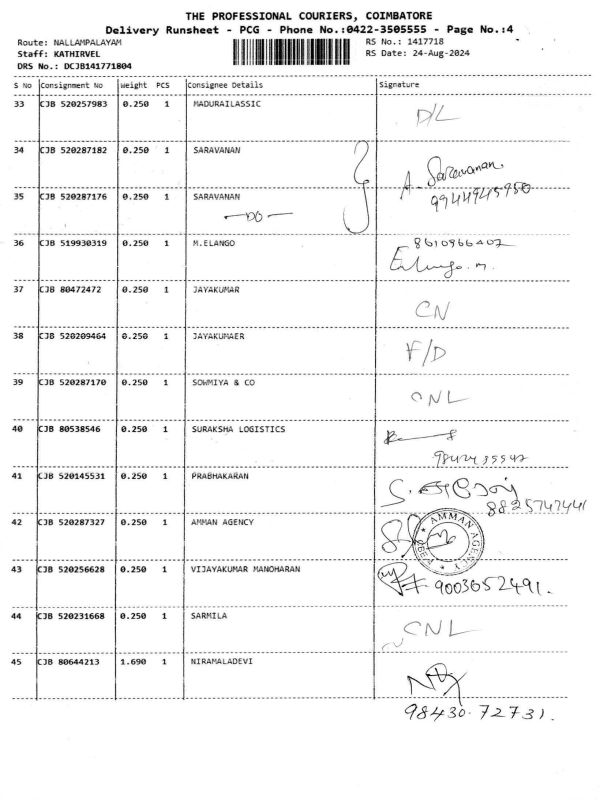 THE PROFESSIONAL COURIERS, COIMBATORE
Delivery Runsheet - PCG - Phone No.:0422-3505555 - Page No.:4
Route: NALLAMPALAYAM RS No.: 1417718
Staff: KATHIRVEL RS Date: 24-Aug-2024
DRS No.: DCJB141771804
S No Consignment No Weight PCS Consignee Details Signature
33 CJB 520257983 0.250 1 MADURAILASSIC D/L
34 CJB 520287182 0.250 1 SARAVANAN A. Saravanan
35 CJB 520287176 0.250 1 SARAVANAN 9944945950
—DO—
36 CJB 519930319 0.250 1 M.ELANGO 8610966407
Elango. m.
37 CJB 80472472 0.250 1 JAYAKUMAR CN
38 CJB 520209464 0.250 1 JAYAKUMAER F/D
39 CJB 520287170 0.250 1 SOWMIYA & CO CNL
40 CJB 80538546 0.250 1 SURAKSHA LOGISTICS
41 CJB 520145531 0.250 1 PRABHAKARAN S.
8825747441
42 CJB 520287327 0.250 1 AMMAN AGENCY AMMAN AGENCY
43 CJB 520256628 0.250 1 VIJAYAKUMAR MANOHARAN 9003652491.
44 CJB 520231668 0.250 1 SARMILA CNL
45 CJB 80644213 1.690 1 NIRAMALADEVI
98430.72731.